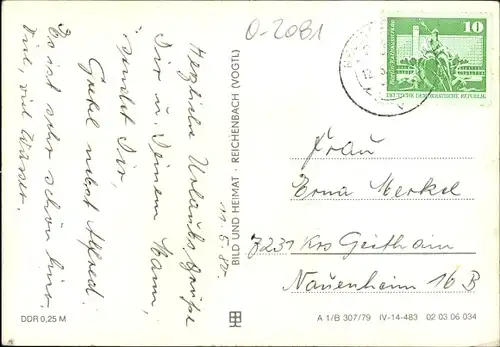 O-2081
Herzliche Urlaubsgrüße
Dir u. Deinem Mann,
sendet Dir,
Gretel nebst Alfred.
Es ist sehr schön hier,
Viel, viel Wasser.
11. 5. 80.
BILD UND HEIMAT · REICHENBACH (VOGTL)
10
DEUTSCHE DEMOKRATISCHE REPUBLIK
Frau
Erna Merkel
7231 Krs Geithain
Nauenheim 16 B
DDR 0,25 M
A 1/B 307/79 IV-14-483 02 03 06 034